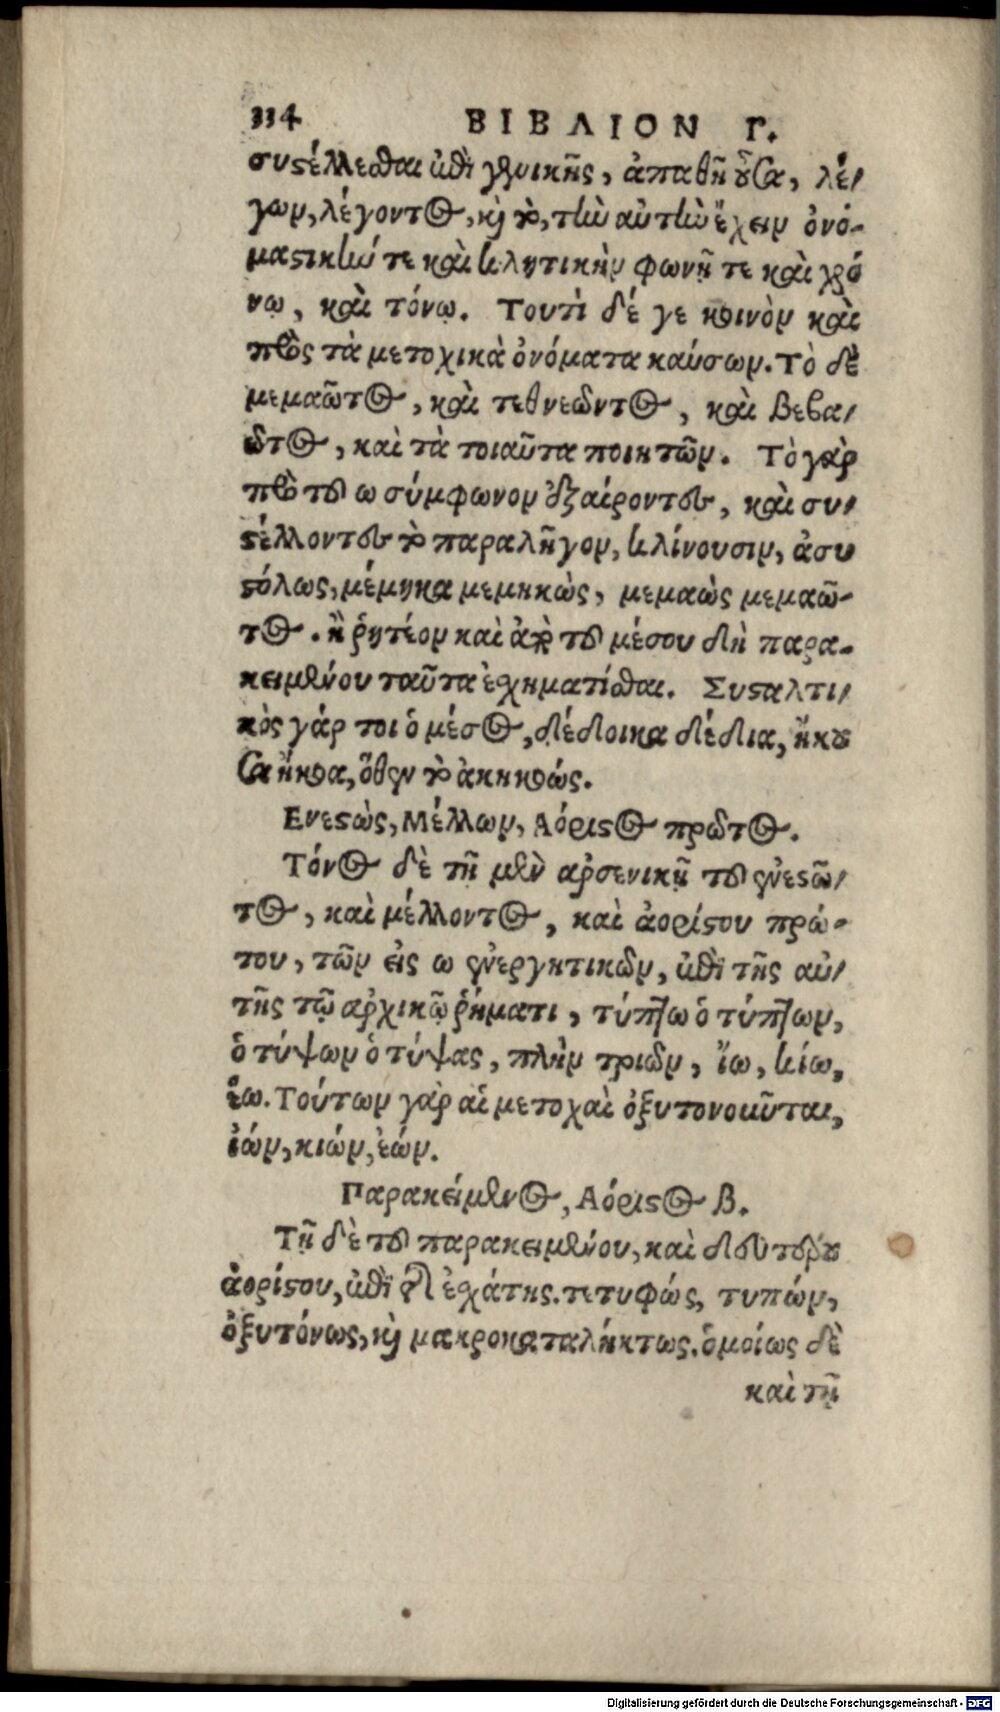 114 ΒΙΒΛΙΟΝ Γ.
συστέλλεσθαι ἐπὶ γενικῆς, ἀπαθῆ οὖσα, λέ-
γων, λέγοντος, καὶ τὸ, τὴν αὐτὴν ἔχειν ὀνο-
μαστικήν τε καὶ κλητικὴν φωνῇ τε καὶ χρό
νῳ, καὶ τόνῳ. Τουτὶ δέ γε κοινὸν καὶ
πρὸς τὰ μετοχικὰ ὀνόματα καύσων. Τὸ δὲ
μεμαῶτος, καὶ τεθνεῶντος, καὶ βεβα-
ῶτος, καὶ τὰ τοιαῦτα ποιητῶν. Τὸ γὰρ
πρὸ τοῦ ω σύμφωνον ἐξαίροντες, καὶ συ-
στέλλοντες τὸ παραλῆγον, κλίνουσιν, ἀσυ
στόλως, μέμηκα μεμηκὼς, μεμαὼς μεμαῶ-
τος. ἢ ῥητέον καὶ ἀπὸ τοῦ μέσου δὴ παρα-
κειμένου ταῦτα ἐσχηματίσθαι. Συσταλτι-
κὸς γάρ τοι ὁ μέσος, δέδοικα δέδια, ἤκου
σα ἤκοα, ὅθεν τὸ ἀκηκοώς.
Ενεστὼς, Μέλλων, Αόριστος πρῶτος.
Τόνος δὲ τῇ μὲν ἀρσενικῇ τοῦ ἐνεστῶ-
τος, καὶ μέλλοντος, καὶ ἀορίστου πρώ-
του, τῶν εἰς ω ἐνεργητικῶν, ἐπὶ τῆς αὐ-
τῆς τῷ ἀρχικῷ ῥήματι, τύπτω ὁ τύπτων,
ὁ τύψων ὁ τύψας, πλὴν τριῶν, ἴω, κίω,
ἔω. Τούτων γὰρ αἱ μετοχαὶ ὀξυτονοῦνται,
ἰών, κιών, ἐών.
Παρακείμενος, Αόριστος β.
Τῇ δὲ τοῦ παρακειμένου, καὶ δευτέρου
ἀορίστου, ἐπὶ τῆς ἐσχάτης. τετυφώς, τυπών,
ὀξυτόνως, καὶ μακροκαταλήκτως. ὁμοίως δὲ
καὶ τῇ
Digitalisierung gefördert durch die Deutsche Forschungsgemeinschaft - DFG